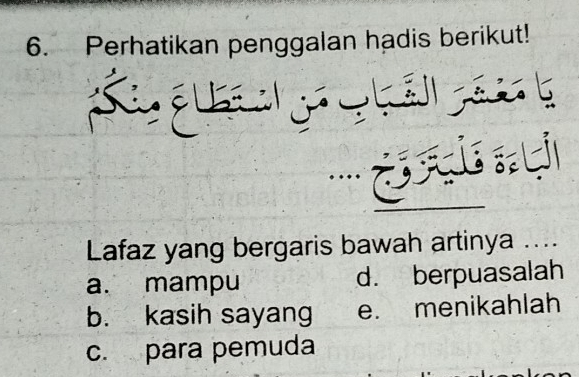 6. Perhatikan penggalan hadis berikut!
يَا مَعْشَرَ الشَّبَابِ مَنِ اسْتَطَاعَ مِنْكُمُ
الْبَاءَةَ فَلْيَتَزَوَّجْ ....
Lafaz yang bergaris bawah artinya ....
a. mampu d. berpuasalah
b. kasih sayang e. menikahlah
c. para pemuda